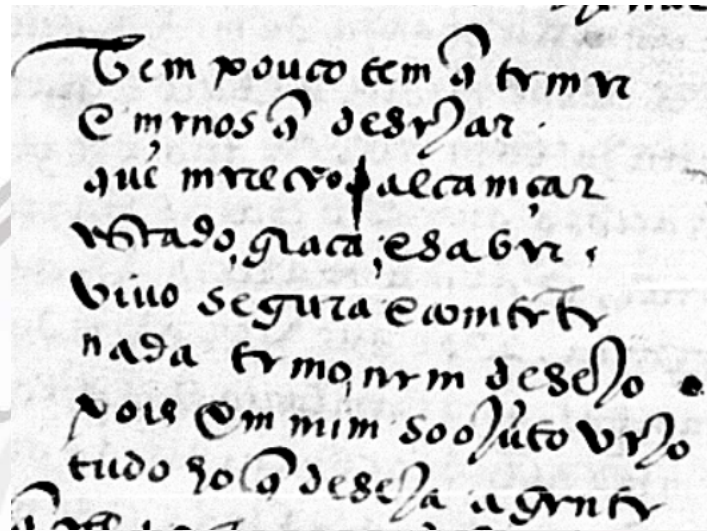 Tem pouco tem q̃ temer
E menos q̃ desejar.
que mereceo alcamçar
estado, graça, e saber.
viuo segura e comtẽte
nada temo, nem desejo
pois em mim soo jũto vejo
tudo ho q̃ deseja a gente